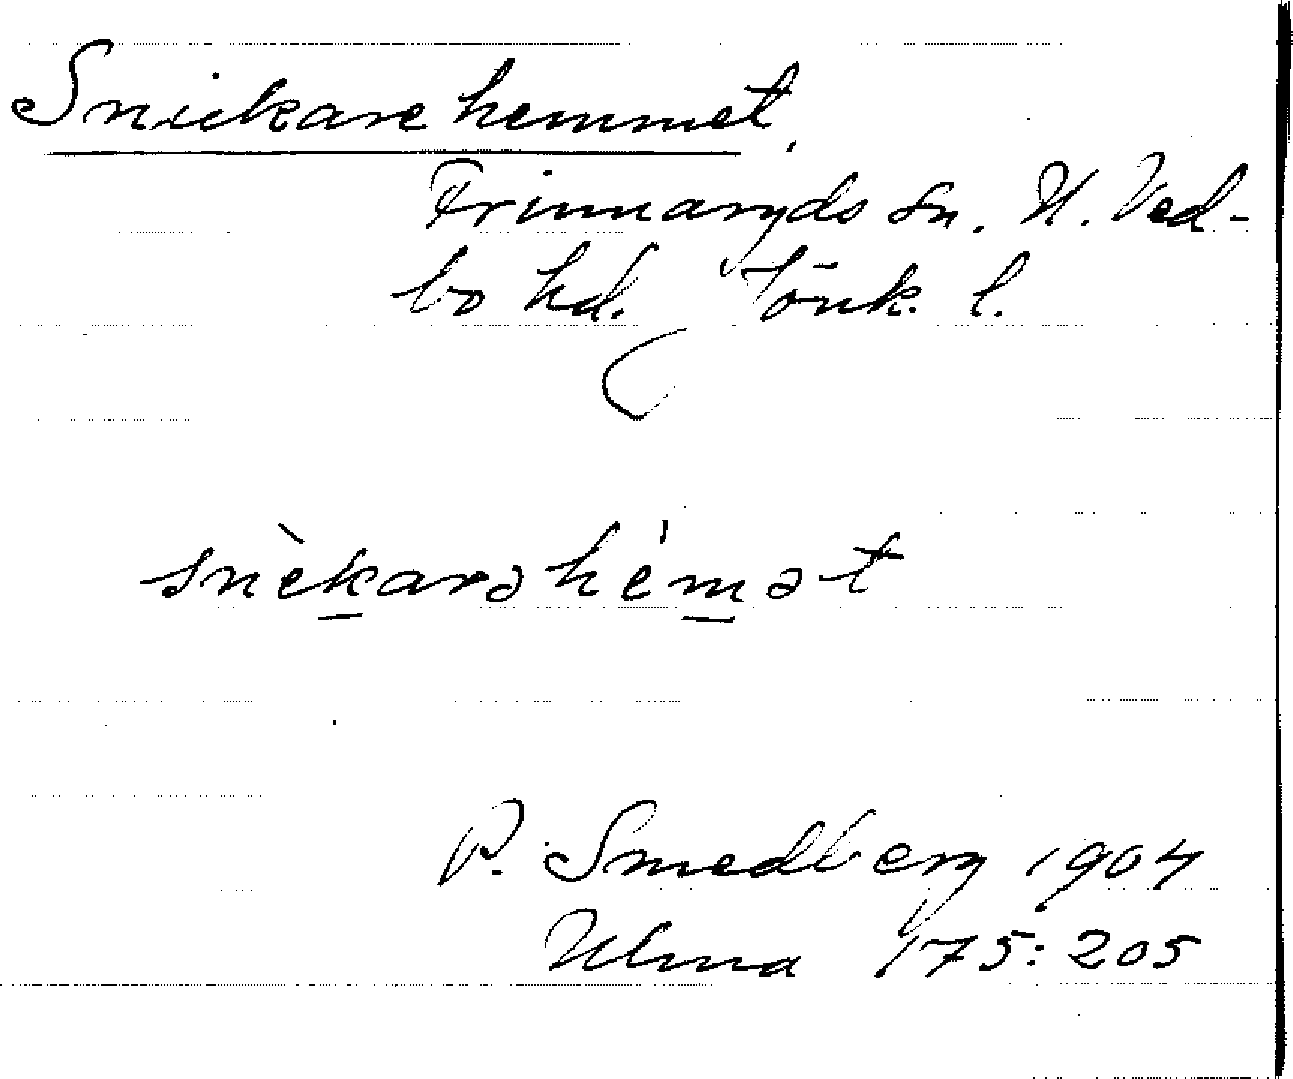 Snickarehemmet.
Frinnaryds sn. N. Ved-
bo hd. Jönk. l.
snèkarəhémət
P. Smedberg 1904
Ulma 175:205